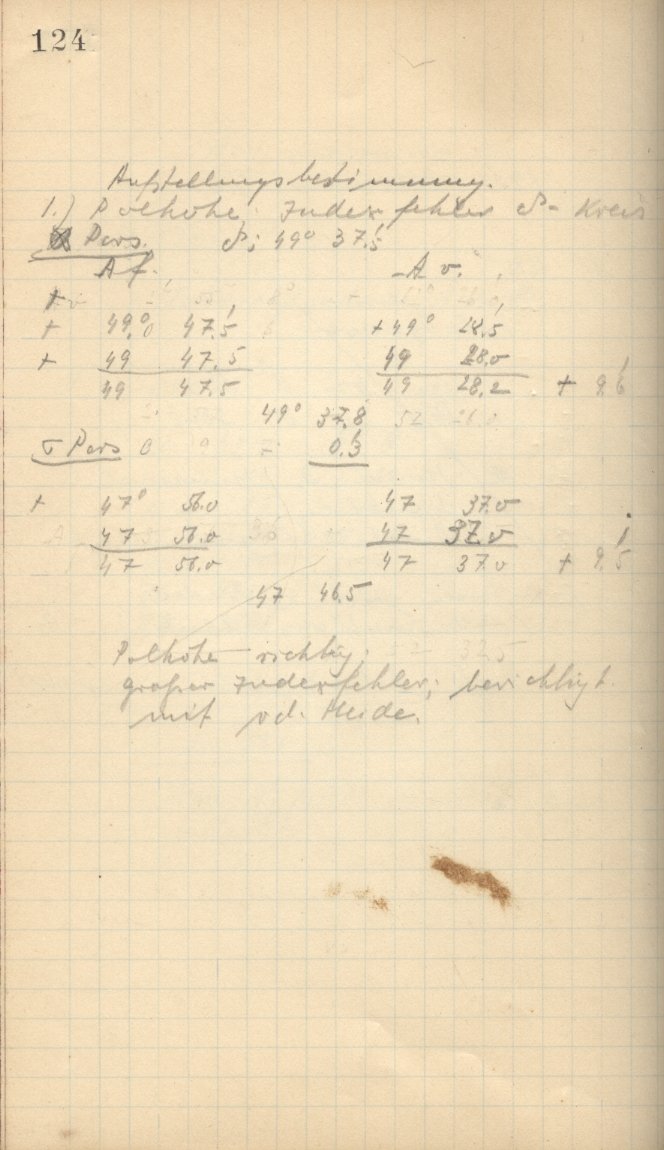 124
Aufstellungsbestimmung.
1.) Polhöhe, Indexfehler δ- Kreis
α Pers. δ: 49° 37.'5
A f. A v.
+ 49.° 47.'5 + 49° 28,5
+ 49 47.5 49 28.0
49 47.5 49 28,2 + 9.'6
49° 37.'8
σ Pers 0.'3
+ 47° 56.0 47 37.0
47 56.0 47 37.0
47 56.0 47 37.0 + 9.'5
47 46.5
Polhöhe richtig;
großer Indexfehler; berichtigt
mit v.d. Heide.